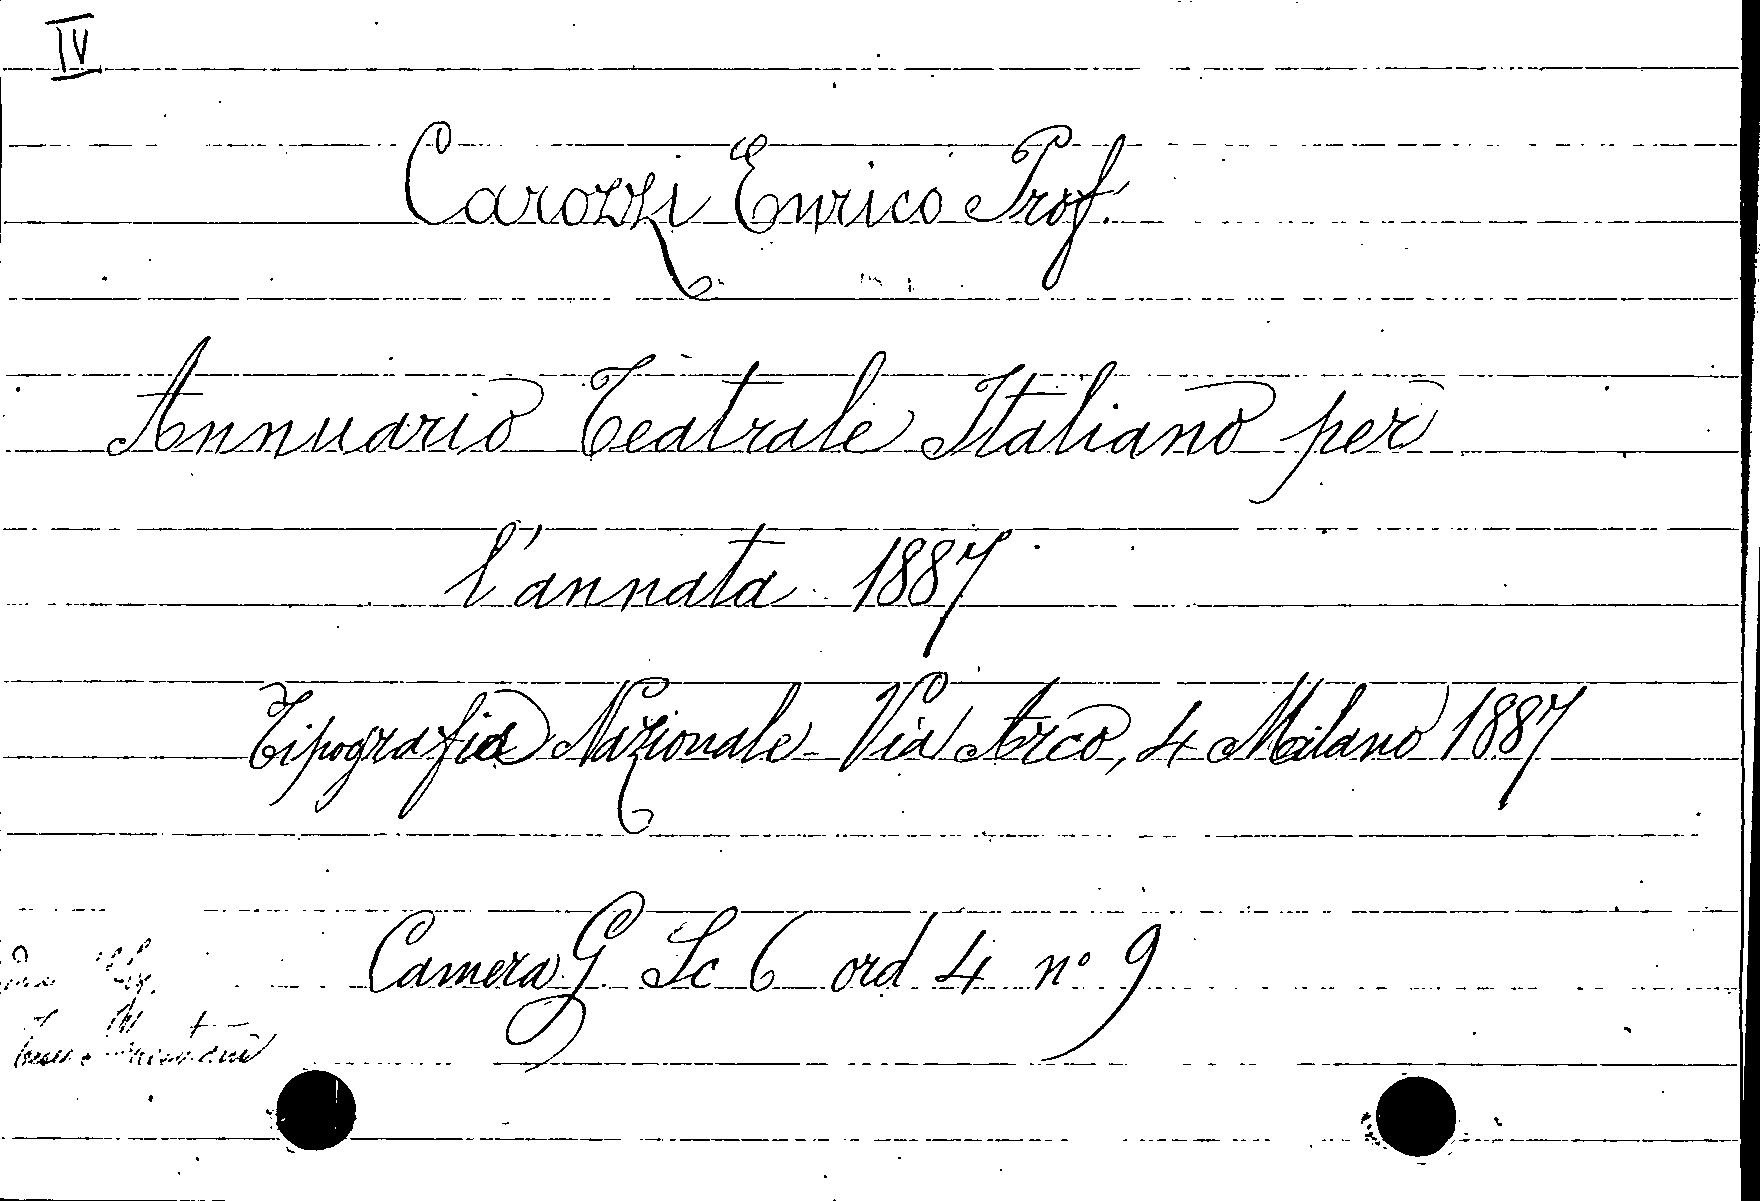 IV
Carozzi Enrico Prof.
Annuario Teatrale Italiano per
l'annata 1887
Tipografia Nazionale - Via Arco, 4 Milano 1887
Camera G Sc 6 ord 4 n° 9